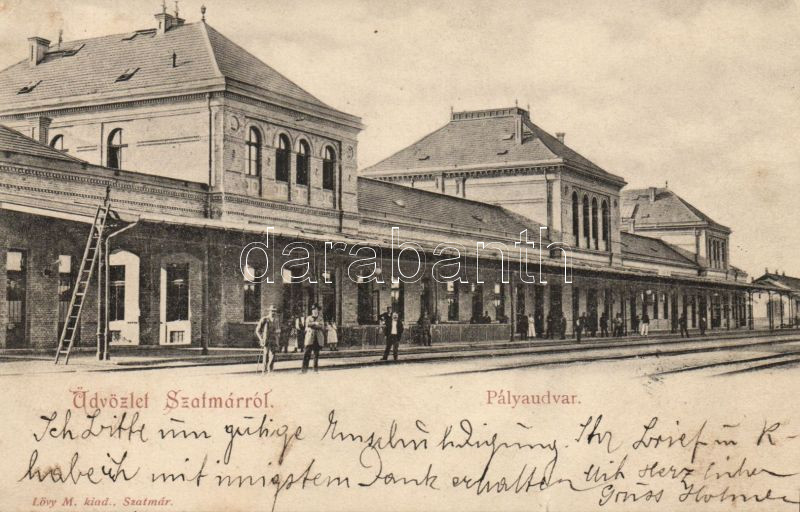 darabanth
Üdvözlet Szatmárról.
Pályaudvar.
Ich bitte um gütige Entschuldigung. Ihr Brief
habe ich mit innigstem Dank erhalten Mit Herzlichem
Gruss
Lövy M. kiad., Szatmár.